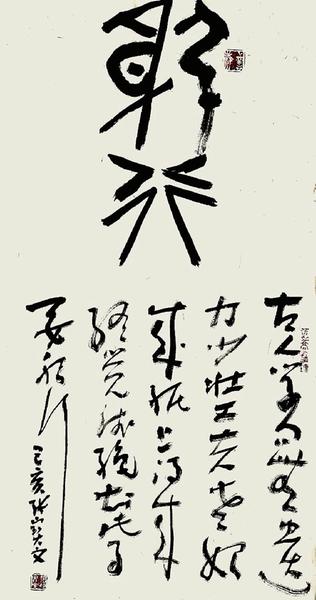 躬行
古人学问无遗
力少壮工夫老始
成纸上得来
终觉浅绝知此事
要躬行
己亥